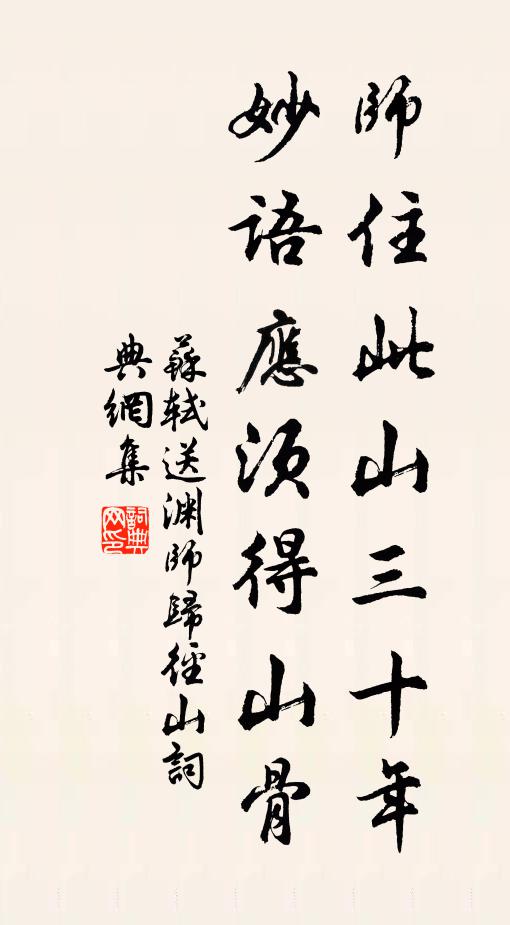 師住此山三十年
妙語應須得山骨
蘇軾送淵師歸徑山詞
典網集
詞典
网印